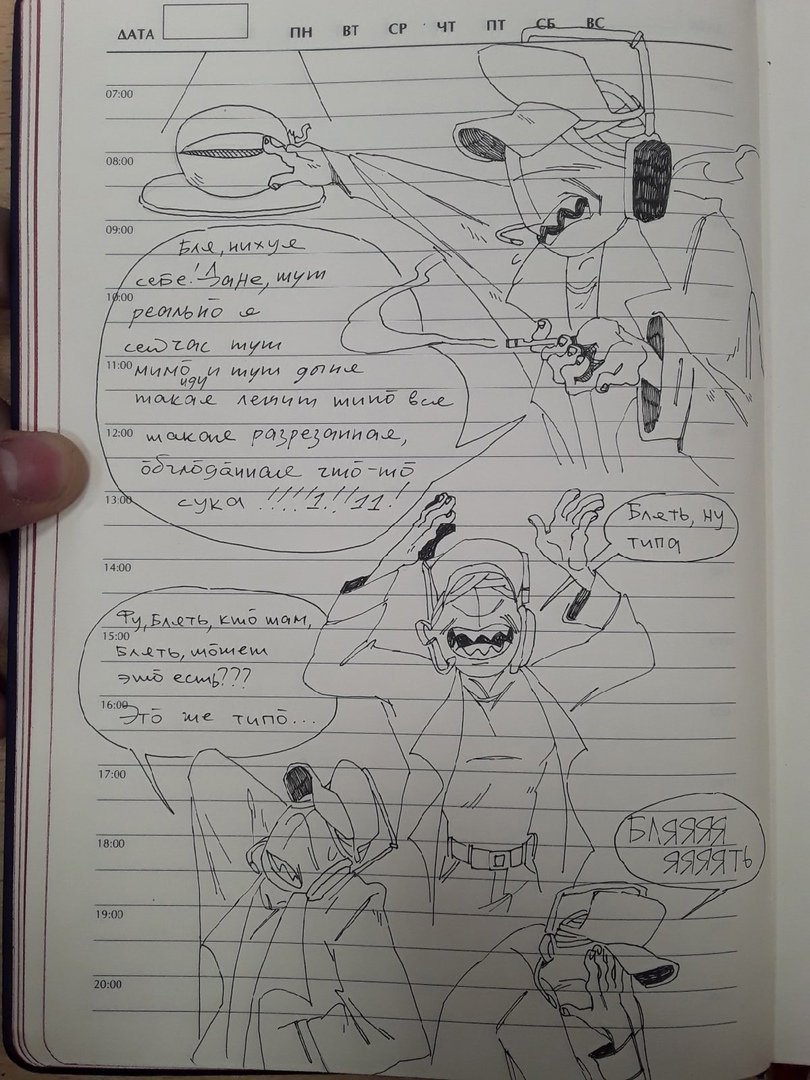 ДАТА ПН ВТ СР ЧТ ПТ СБ ВС
07:00
08:00
09:00
Бля, нихуя
себе! Зане, тут
10:00
реально я
сейчас тут
11:00
мимо иду и тут дыня
такая лежит типо вся
12:00
такая разрезанная,
обглоданная что-то
13:00
сука !!!!1!!11!
Блять, ну
типа
14:00
Фу, Блять, кто там,
15:00
Блять, может
это есть???
16:00
Это же типо...
17:00
БЛЯЯЯЯ
ЯЯЯЯТЬ
18:00
19:00
20:00